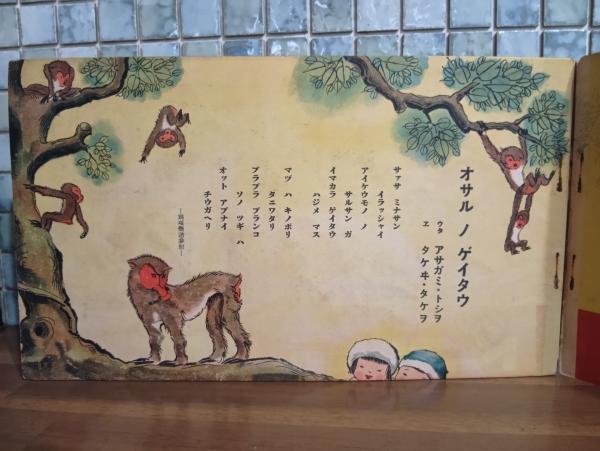 オサル ノ ゲイタウ
ウタ アサガミ・トシヲ
ヱ タケヰ・タケヲ
サァサ ミナサン
イラッシャイ
アイケウモノ ノ
サルサン ガ
イマカラ ゲイタウ
ハジメ マス
マヅ ハ キノボリ
タニワタリ
ブラブラ ブランコ
ソノ ツギ ハ
オット アブナイ
チウガヘリ